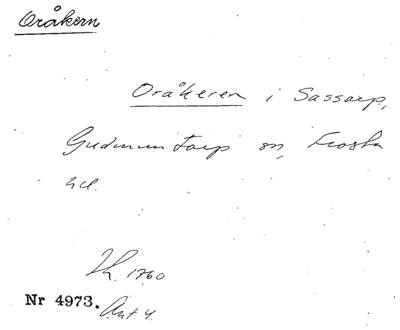 Oråkern
Oråkeren i Sassarp,
Gudmuntorp sn, Frosta
hd.
1760
Nr 4973. Akt 4.